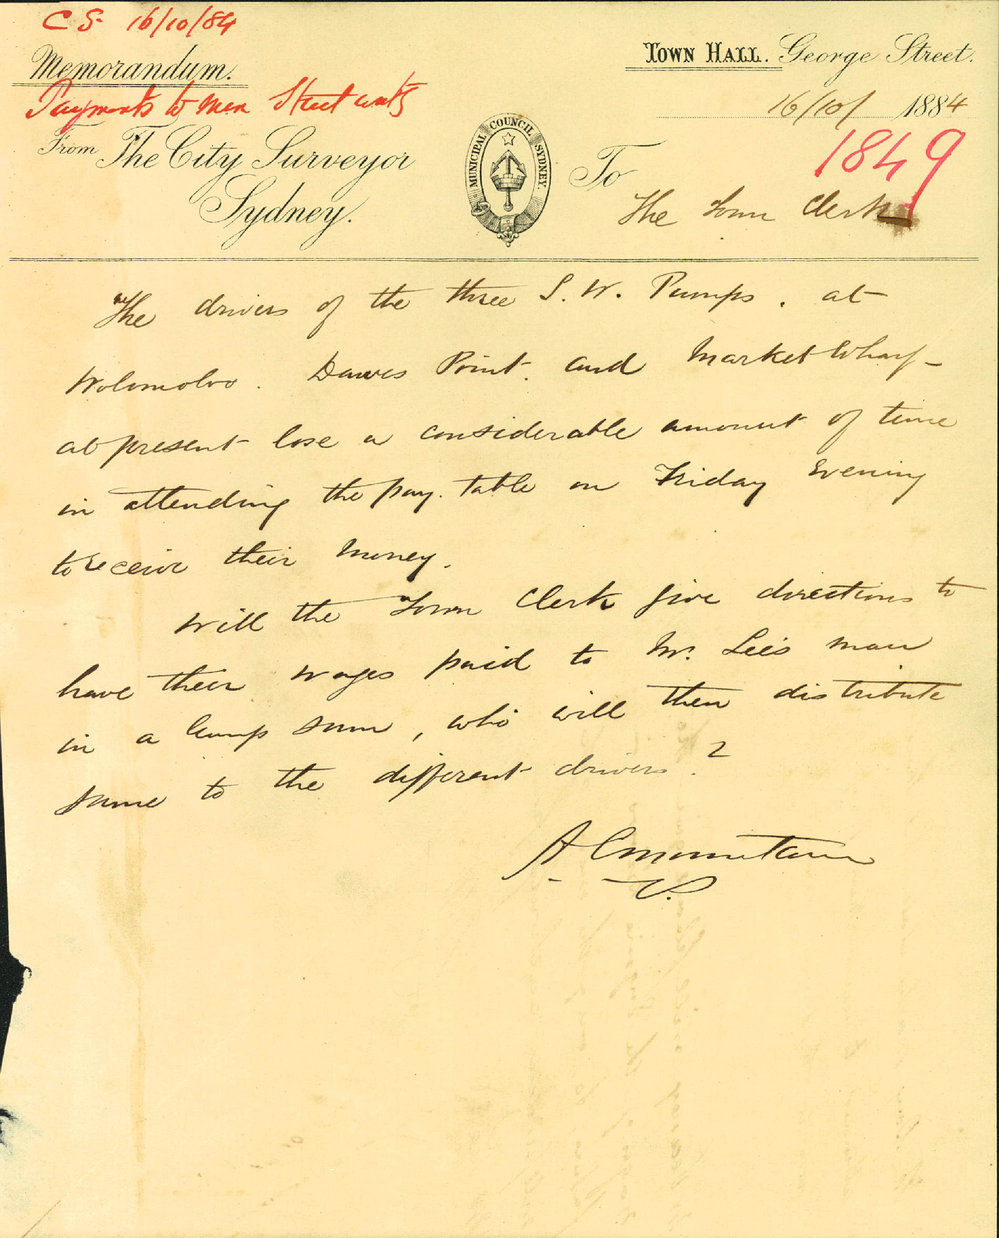 C S. 16/10/84
Memorandum.
Payments to men Street
From The City Surveyor
Sydney.
MUNICIPAL COUNCIL SYDNEY.
Town Hall. George Street.
16/10/ 1884
1849
To
The Town Clerk
The drivers of the three S. W. Pumps. at
Wolomoloo. Dawes Point. and Market Wharf-
at present lose a considerable amount of time
in attending the pay. table on Friday Evening
to receive their money.
Will the Town Clerk give directions to
have their wages paid to Mr. Lee's man
in a lump sum, who will then distribute
same to the different drivers.?
A C Mountain